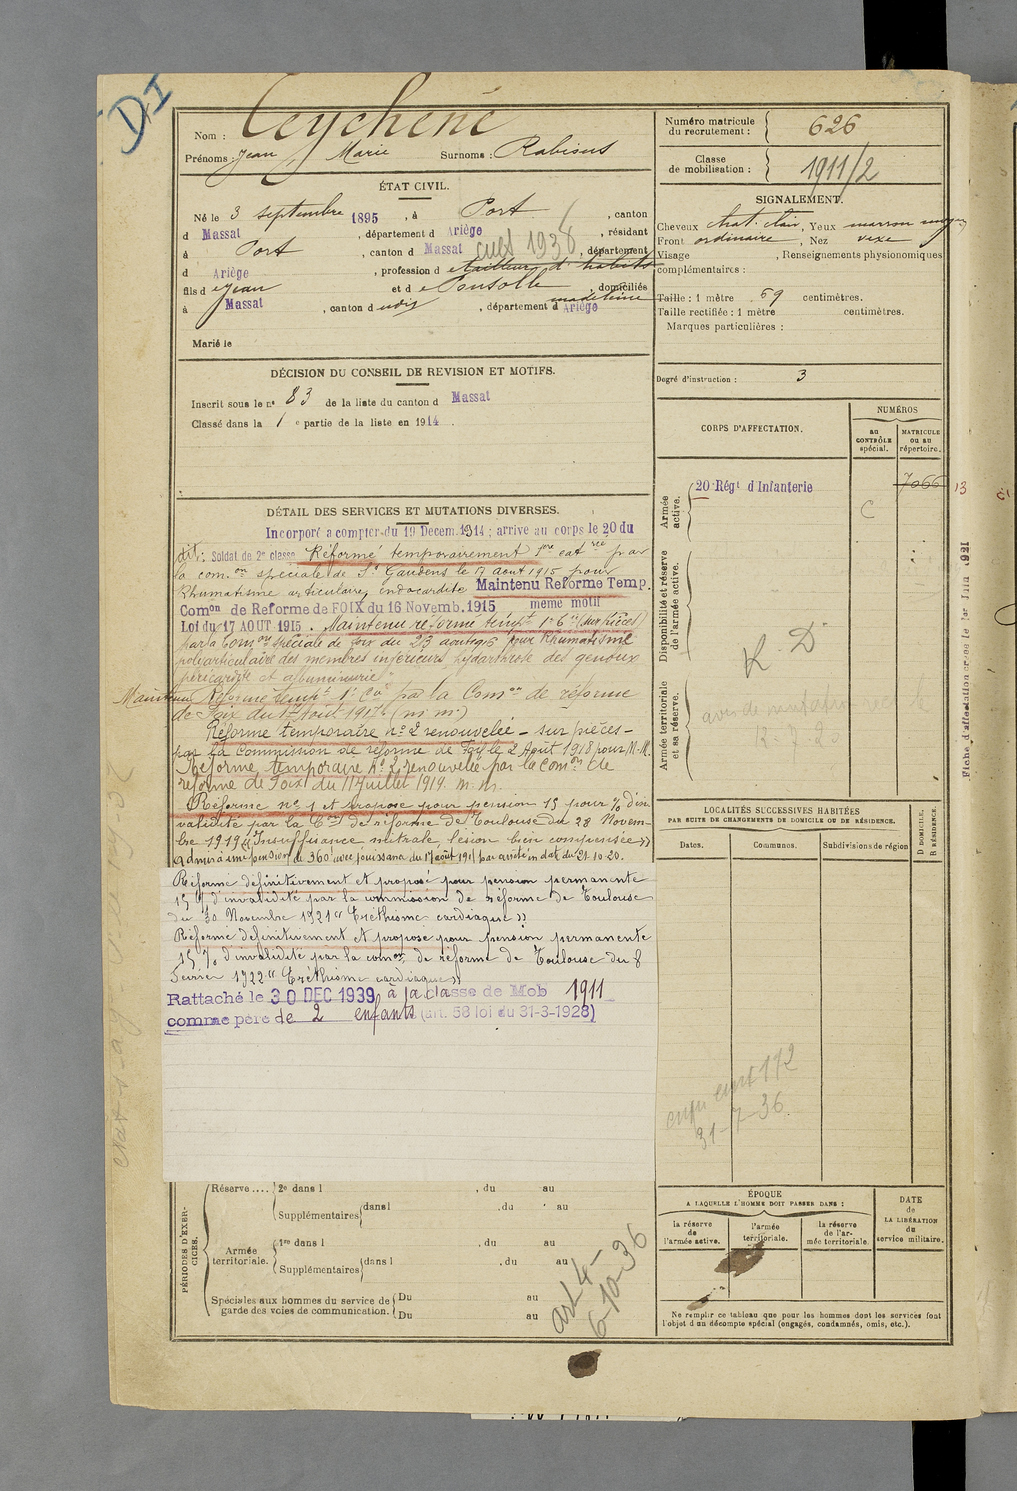 DI
Nom : Teychené
Prénoms : Jean Marie Surnoms : Rabisus
ÉTAT CIVIL.
Né le 3 septembre 1895, à Port, canton
d Massat, département d Ariège, résidant
à Port, canton d Massat, département
cust 1938
d Ariège, profession d tailleur d'habits
fils d e Jean et d e Ponsolle madeleine, domiciliés
à Massat, canton d udis, département d Ariège
Marié le
DÉCISION DU CONSEIL DE REVISION ET MOTIFS.
Inscrit sous le n° 83 de la liste du canton d Massat
Classé dans la 1 e partie de la liste en 1914.
DÉTAIL DES SERVICES ET MUTATIONS DIVERSES.
Incorporé a compter du 19 Decem. 1914 ; arrive au corps le 20 du
dit; Soldat de 2e classe Réformé temporairement 1ere catrie par
la com.on spéciale de St Gaudens le 17 aout 1915 pour
Rhumatisme articulaire, endocardite Maintenu Reforme Temp.
Comon de Reforme de FOIX du 16 Novemb. 1915 meme motif
Loi du 17 AOUT 1915. Maintenu reformé tempt 1e Cie (sur pièces)
par la Comon spéciale de Foix du 23 aout 1916 pour Rhumatisme
polyarticulaire des membres inférieurs hydarthrose des genoux
péricardite et albuminurie
Maintenu Réformé tempt 1e Cie par la Comon de réforme
de Foix du 1er Aout 1917 (m. m.)
Réforme temporaire n° 2 renouvelée - sur pièces -
par la commission de réforme de Foix le 2 Août 1918 pour M. M.
Réforme temporaire N° 2 renouvelée par la Comon de
réforme de Foix du 17 juillet 1919. m. m.
Réformé n° 1 et proposé pour pension 15 pour % d'in-
validité par la Con de réforme de Toulouse du 28 Novem-
bre 1919 "Insuffisance mitrale, lésion bien compensée"
Admis à une pension de 360f avec jouissance du 17 août 191 par arrêté en date du 21.10.20.
Réformé définitivement et proposé pour pension permanente
15 % d'invalidité par la commission de réforme de Toulouse
du 30 Novembre 1921 "Eréthisme cardiaque"
Réformé définitivement et proposé pour pension permanente
15 % d'invalidité par la comon de réforme de Toulouse du 8
Fevrier 1922 "Eréthisme cardiaque"
Rattaché le 30 DEC 1939 à la classe de Mob 1911
comme père de 2 enfants (art. 58 loi du 31-3-1928)
PÉRIODES D'EXERCICES.
Réserve.... 2e dans l , du au
Supplémentaires dans l , du au
Armée territoriale. 1re dans l , du au
Supplémentaires dans l , du au
Spéciales aux hommes du service de garde des voies de communication. Du au
Du au
art 4-
6-10-36
Numéro matricule du recrutement : 626
Classe de mobilisation : 1911/2
SIGNALEMENT.
Cheveux chat. clair, Yeux marron moyen
Front ordinaire, Nez vexe
Visage , Renseignements physionomiques
complémentaires :
Taille : 1 mètre 69 centimètres.
Taille rectifiée : 1 mètre centimètres.
Marques particulières :
Degré d'instruction : 3
CORPS D'AFFECTATION.
NUMÉROS
au CONTRÔLE spécial.
MATRICULE ou au répertoire.
Armée active.
20 Régt d'Infanterie
C
7066
13
Disponibilité et réserve de l'armée active.
K. D
Armée territoriale et sa réserve.
K-7-20
Fiche d'affectation créée le 1er Juin 1921
LOCALITÉS SUCCESSIVES HABITÉES
PAR SUITE DE CHANGEMENTS DE DOMICILE OU DE RÉSIDENCE.
Dates.
Communes.
Subdivisions de région
D DOMICILE, R RÉSIDENCE.
31-7-36
ÉPOQUE
A LAQUELLE L'HOMME DOIT PASSER DANS :
la réserve de l'armée active.
l'armée territoriale.
la réserve de l'armée territoriale.
DATE de LA LIBÉRATION du service militaire.
Ne remplir ce tableau que pour les hommes dont les services font
l'objet d'un décompte spécial (engagés, condamnés, omis, etc.).